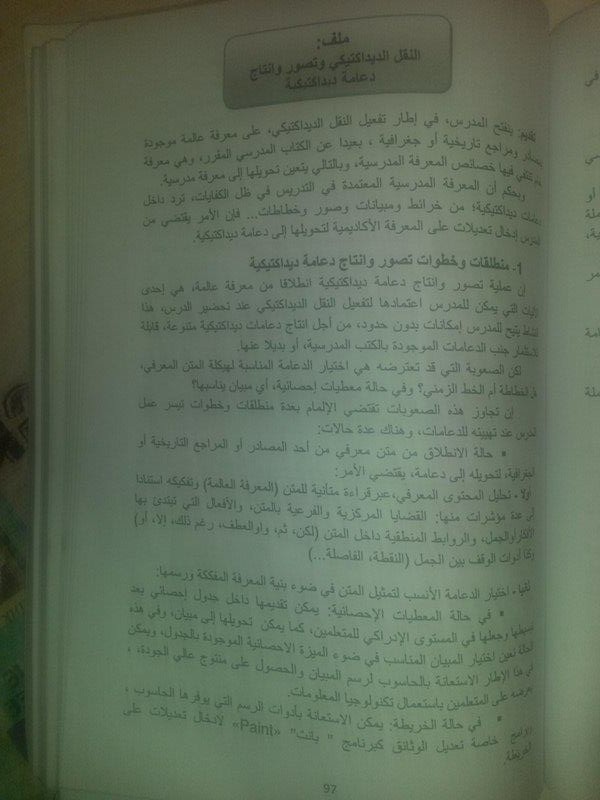 ملف:
النقل الديداكتيكي وتصور وانتاج
دعامة ديداكتيكية
تقديم: ينفتح المدرس، في إطار تفعيل النقل الديداكتيكي، على معرفة عالمة موجودة
بمصادر ومراجع تاريخية أو جغرافية ، بعيدا عن الكتاب المدرسي المقرر، وهي معرفة
تنتفي فيها خصائص المعرفة المدرسية، وبالتالي يتعين تحويلها إلى معرفة مدرسية.
وبحكم أن المعرفة المدرسية المعتمدة في التدريس في ظل الكفايات، ترد داخل
دعامات ديداكتيكية؛ من خرائط ومبيانات وصور وخطاطات... فإن الأمر يقتضي من
المدرس إدخال تعديلات على المعرفة الأكاديمية لتحويلها إلى دعامة ديداكتيكية.
1- منطلقات وخطوات تصور وانتاج دعامة ديداكتيكية
إن عملية تصور وانتاج دعامة ديداكتيكية انطلاقا من معرفة عالمة، هي إحدى
الآليات التي يمكن للمدرس اعتمادها لتفعيل النقل الديداكتيكي عند تحضير الدرس، هذا
النشاط يتيح للمدرس إمكانات بدون حدود، من أجل انتاج دعامات ديداكتيكية متنوعة، قابلة
للاستثمار جنب الدعامات الموجودة بالكتب المدرسية، أو بديلا عنها.
لكن الصعوبة التي قد تعترضه هي اختيار الدعامة المناسبة لهيكلة المتن المعرفي،
هل الخطاطة أم الخط الزمني؟ وفي حالة معطيات إحصائية، أي مبيان يناسبها؟
إن تجاوز هذه الصعوبات تقتضي الإلمام بعدة منطلقات وخطوات تيسر عمل
المدرس عند تهييئه للدعامات، وهناك عدة حالات:
▪ حالة الانطلاق من متن معرفي من أحد المصادر أو المراجع التاريخية أو
الجغرافية، لتحويله إلى دعامة، يقتضي الأمر:
أولا - تحليل المحتوى المعرفي،عبر قراءة متأنية للمتن (المعرفة العالمة) وتفكيكه استنادا
إلى عدة مؤشرات منها: القضايا المركزية والفرعية بالمتن، والأفعال التي تبتدئ بها
الأفكار أو الجمل، والروابط المنطقية داخل المتن (لكن، ثم، واوالعطف، رغم ذلك، إلا، أو)
وكذا أدوات الوقف بين الجمل (النقطة، الفاصلة...)
ثانيا - اختيار الدعامة الأنسب لتمثيل المتن في ضوء بنية المعرفة المفككة ورسمها:
▪ في حالة المعطيات الإحصائية: يمكن تقديمها داخل جدول إحصائي بعد
تبسيطها وجعلها في المستوى الإدراكي للمتعلمين، كما يمكن تحويلها إلى مبيان، وفي هذه
الحالة تعين اختيار المبيان المناسب في ضوء الميزة الاحصائية الموجودة بالجدول، ويمكن
في هذا الإطار الاستعانة بالحاسوب لرسم المبيان والحصول على منتوج عالي الجودة، ،
يعرضه على المتعلمين باستعمال تكنولوجيا المعلومات.
▪ في حالة الخريطة: يمكن الاستعانة بأدوات الرسم التي يوفرها الحاسوب ،
والبرامج خاصة تعديل الوثائق كبرنامج " بانت" «Paint» لادخال تعديلات على
الخريطة.
97